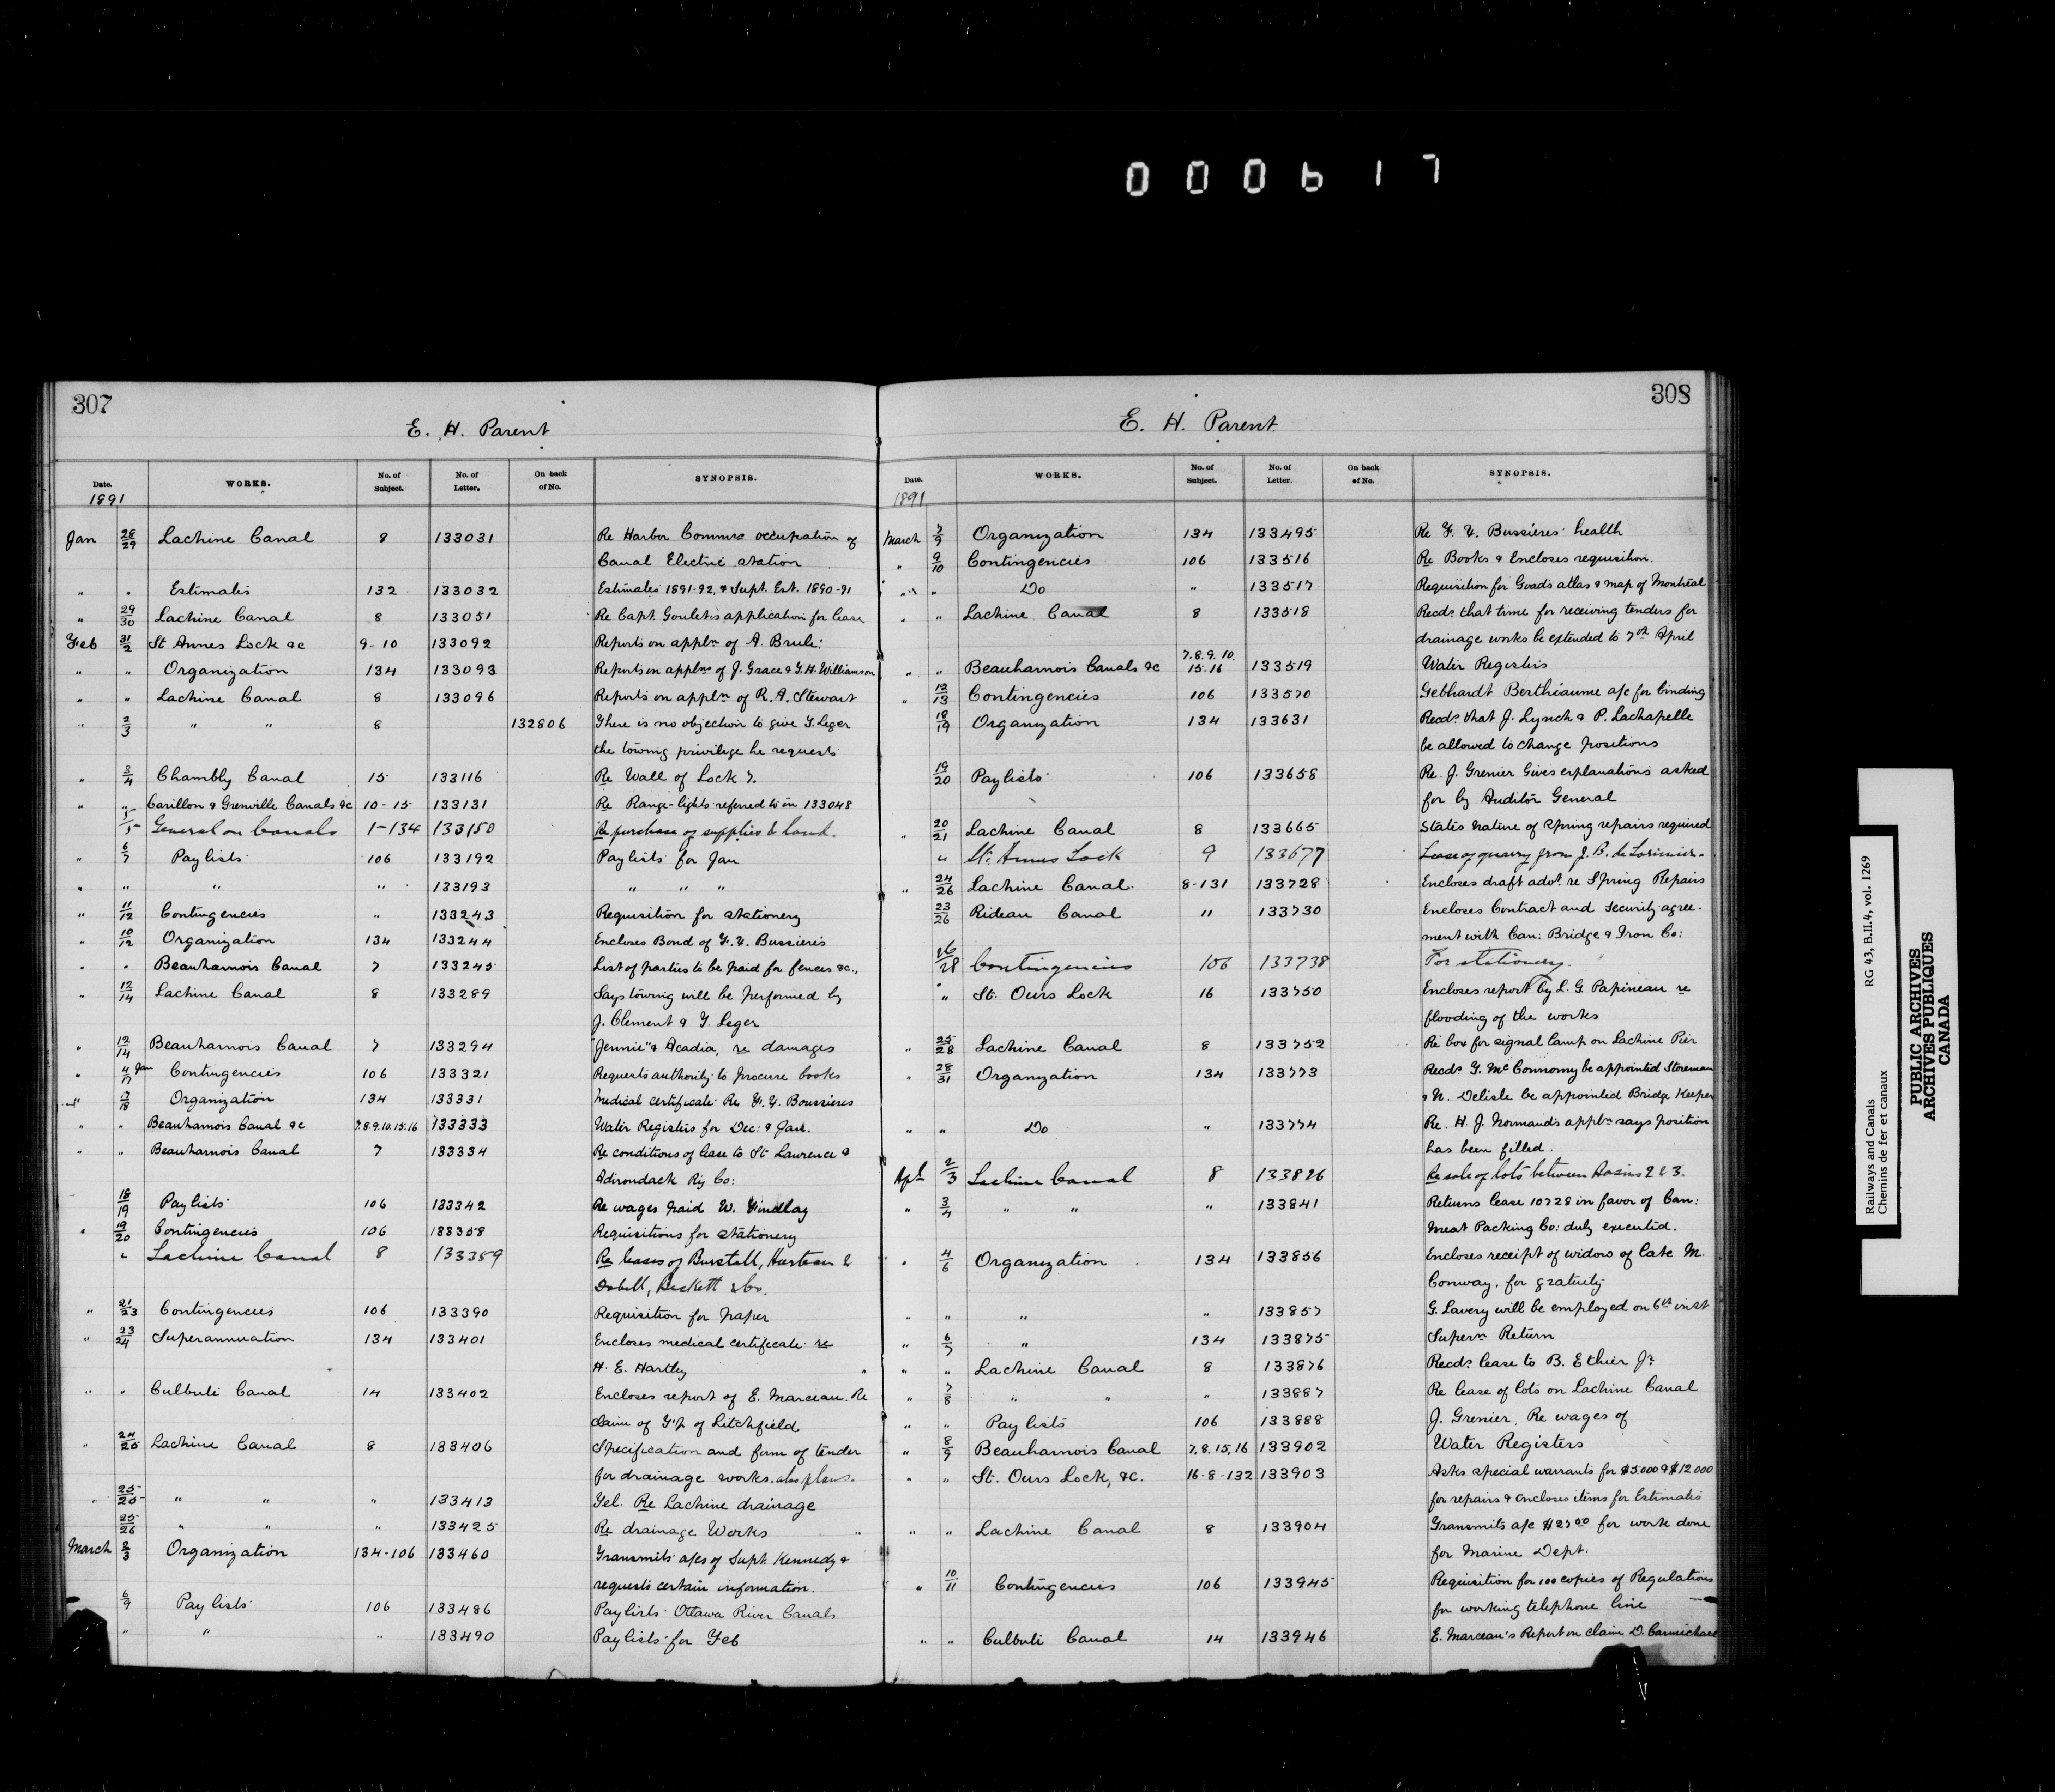 000617
307
E. H. Parent
Date. WORKS. No. of Subject. No. of Letter. On back of No. SYNOPSIS.
1891
Jan 28/29 Lachine Canal 8 133031 Re Harbor Commrs occupation of
Canal Electric station
" " Estimates 132 133032 Estimates 1891-92, & Supt. Est. 1890-91
" 29/30 Lachine Canal 8 133051 Re Capt. Goulet's application for lease
Feb 31/2 St Annes Lock &c 9-10 133092 Reports on appln of A. Brule:
" " Organization 134 133093 Reports on applns of J. Grace & T. H. Williamson
" " Lachine Canal 8 133096 Reports on appln of R. A. Stewart
" 2/3 " " 8 132806 There is no objection to give T. Leger
the towing privilege he requests
" 3/4 Chambly Canal 15 133116 Re Wall of Lock 7.
" " Carillon & Grenville Canals &c 10-15 133131 Re Range-lights referred to in 133048
5/5 General on Canals 1-134 133150 Re purchase of supplies & land.
" 6/7 Paylists 106 133192 Paylists for Jan
" " " " 133193 " " "
" 11/12 Contingencies " 133243 Requisition for stationery
" 10/12 Organization 134 133244 Encloses Bond of F. X. Bussieres
" " Beauharnois Canal 7 133245 List of parties to be paid for fences &c.,
" 12/14 Lachine Canal 8 133289 Says towing will be performed by
J. Clement & T. Leger
" 12/14 Beauharnois Canal 7 133294 "Jennie" & Acadia, re damages
" 4 Jan/17 Contingencies 106 133321 Requests authority to procure books
" /18 Organization 134 133331 Medical certificate Re F. X. Boussieres
" " Beauharnois Canal &c 7.8.9.10.15.16 133333 Water Registers for Dec: & Jan.
" " Beauharnois Canal 7 133334 Re conditions of lease to St Lawrence &
Adirondack Ry Co:
18/19 Paylists 106 133342 Re wages paid W. Findlay
" 19/20 Contingencies 106 133358 Requisitions for stationery
" Lachine Canal 8 133359 Re leases of Burstall, &
Dobell, Beckett & Co.
" 21/23 Contingencies 106 133390 Requisition for paper
" 23/24 Superannuation 134 133401 Encloses medical certificate re
H. E. Hartley
" " Culbute Canal 14 133402 Encloses report of E. Marceau. Re
claim of T'p of Litchfield
" 24/25 Lachine Canal 8 133406 Specification and form of tender
for drainage works. also plans.
" 25/25 " " " 133413 Tel. Re Lachine drainage
25/26 " " " 133425 Re drainage Works
March 2/3 Organization 134-106 133460 Transmits a/cs of Supt. Kennedy &
requests certain information.
6/9 Paylists 106 133486 Paylists Ottawa River Canals
" " " 133490 Paylists for Feb
308
E. H. Parent
Date. WORKS. No. of Subject. No. of Letter. On back of No. SYNOPSIS.
1891
March 7/9 Organization 134 133495 Re F. X. Bussieres health
" 9/10 Contingencies 106 133516 Re Books & Encloses requisition.
" " Do " 133517 Requisition for Goad's atlas & map of Montreal
" " Lachine Canal 8 133518 Recds. that time for receiving tenders for
drainage works be extended to 7th April
" " Beauharnois Canals &c 7.8.9.10.15.16 133519 Water Registers
" 12/13 Contingencies 106 133570 Gebhardt Berthiaume a/c for binding
18/19 Organization 134 133631 Recds. that J. Lynch & P. Lachapelle
be allowed to change positions
19/20 Paylists 106 133658 Re. J. Grenier Gives explanations asked
for by Auditor General
" 20/21 Lachine Canal 8 133665 States nature of Spring repairs required
" St. Annes Lock 9 133677 Lease of quarry from J. B. de Lorimier.
" 24/26 Lachine Canal 8-131 133728 Encloses draft advt. re Spring Repairs
23/26 Rideau Canal 11 133730 Encloses Contract and security agree-
ment with Can: Bridge & Iron Co:
26/28 Contingencies 106 133738 For stationery.
" " St. Ours Lock 16 133750 Encloses report by L. G. Papineau re
flooding of the works
" 25/28 Lachine Canal 8 133752 Re box for signal lamp on Lachine Pier
" 28/31 Organization 134 133773 Recds. T. McConnomy be appointed Storeman
& N. Delisle be appointed Bridge Keeper
" " Do " 133774 Re. H. J. Normand's appln says position
has been filled.
Apl 2/3 Lachine Canal 8 133826 Re sale of lots between Basins 2 & 3.
" 3/4 " " " 133841 Returns lease 10728 in favor of Can:
Meat Packing Co: duly executed.
" 4/6 Organization 134 133856 Encloses receipt of widow of late M.
Conway, for gratuity
" " " " 133857 G. Lavery will be employed on 6th inst
" 6/7 " 134 133875 Supern Return
" " Lachine Canal 8 133876 Recds. lease to B. Ethier Jr.
" 7/8 " " " 133887 Re lease of lots on Lachine Canal
" " Paylists 106 133888 J. Grenier, Re wages of
" 8/9 Beauharnois Canal 7, 8, 15, 16 133902 Water Registers
" " St. Ours Lock, &c. 16-8-132 133903 Asks special warrants for $5.000 & $12 000
for repairs & encloses items for Estimates
" " Lachine Canal 8 133904 Transmits a/c $27 00 for work done
for Marine Dept.
" 10/11 Contingencies 106 133945 Requisition for 100 copies of Regulations
for working telephone line
" " Culbute Canal 14 133946 E. Marceau's Report on claim D. Carmichael
Railways and Canals RG 43, B.II.4, vol. 1269
Chemins de fer et canaux
PUBLIC ARCHIVES
ARCHIVES PUBLIQUES
CANADA